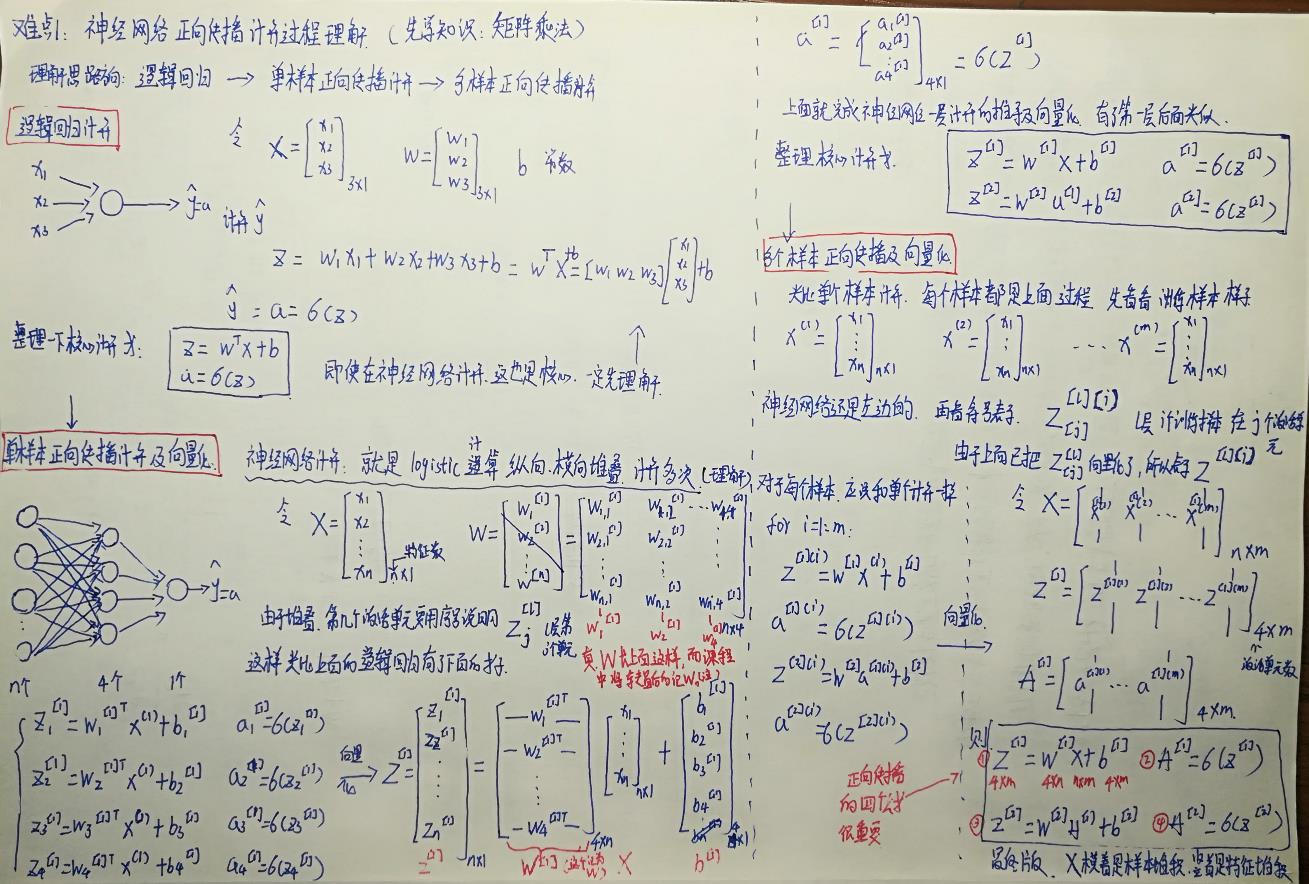 难点1: 神经网络正向传播计算过程理解. (先学知识: 矩阵乘法)
理解思路方向: 逻辑回归 → 单样本正向传播计算 → 多样本正向传播
逻辑回归计算
令 X = [x1 x2 x3]3×1 W = [w1 w2 w3]3×1 b 常数
x1
x2
x3
ŷ=a 计算 ŷ
z = w1x1 + w2x2 + w3x3 + b = w^T X + b = [w1 w2 w3] [x1 x2 x3] + b
ŷ = a = 6(z)
整理一下核心计算式:
z = w^T x + b
a = 6(z)
即使在神经网络计算, 这也是核心. 一定先理解
单样本正向传播计算及向量化
神经网络计算: 就是 logistic 计算 纵向、横向堆叠, 计算多次 (理解)
令 X = [x1 x2 ⋮ xn]n×1 特征数
W = [w1^[1] w2^[2] ⋮ w^[n]] = [w1,1^[1] w2,1^[1] ⋮ wn,1^[1] w2,2^[1] wn,2^[1] wn,4^[1]]n×4
w1^[1] w2^[1] w4^[1]
由于堆叠, 第几个神经单元要用序号说明 Zj^[l] l层第j个单元
真, W长上面这样, 而课程
这样类比上面的逻辑回归有了下面的式子.
ŷ=a
n个 4个 1个
z1^[1] = w1^[1]T x^(1) + b1^[1] a1^[1] = 6(z1^[1])
z2^[1] = w2^[1]T x^(1) + b2^[1] a2^[1] = 6(z2^[1])
z3^[1] = w3^[1]T x^(1) + b3^[1] a3^[1] = 6(z3^[1])
z4^[1] = w4^[1]T x^(1) + b4^[1] a4^[1] = 6(z4^[1])
向量化 → Z^[1] = [z1^[1] z2^[1] ⋮ zn^[1]]n×1 = [—w1^[1]T— —w2^[1]T— ⋮ —w4^[1]T—]4×n [x1 ⋮ xn]n×1 + [b1^[1] b2^[1] b3^[1] b4^[1]]4×1
z^[1] W^[1] X b^[1]
a^[1] = [a1^[1] a2^[1] ⋮ a4^[1]]4×1 = 6(z^[1])
上面就完成神经网络一层计算的推导及向量化. 有了第一层后面类似.
整理核心计算式.
z^[1] = w^[1]x + b^[1] a^[1] = 6(z^[1])
z^[2] = w^[2]a^[1] + b^[2] a^[2] = 6(z^[2])
多个样本正向传播及向量化
类比单个样本计算. 每个样本都是上面过程. 先看看训练样本样子
x^(1) = [x1 ⋮ xn]n×1 x^(2) = [x1 ⋮ xn]n×1 ... x^(m) = [x1 ⋮ xn]n×1
神经网络还是左边的. 再看符号表示. Z[j]^[l](i) l层 i训练样本 在j个神经单元
由于上面已把 Z[j]^[l] 向量化了, 所以表示 Z^[l](i)
对于每个样本, 应该和单个计算一样
for i=1:m:
z^[1](i) = w^[1]x^(i) + b^[1]
a^[1](i) = 6(z^[1](i))
z^[2](i) = w^[2]a^[1](i) + b^[2]
a^[2](i) = 6(z^[2](i))
向量化 →
令 X = [x^(1) x^(2) ... x^(m)]n×m
Z^[1] = [z^[1](1) z^[1](2) ... z^[1](m)]4×m
神经单元数
A^[1] = [a^[1](1) ... a^[1](m)]4×m
正向传播
的四个式
很重要
则
① Z^[1] = W^[1]X + b^[1] ② A^[1] = 6(Z^[1])
4×m 4×n n×m 4×m
③ Z^[2] = W^[2]A^[1] + b^[2] ④ A^[2] = 6(Z^[2])
最终版. X横着是样本堆积, 竖着是特征堆积